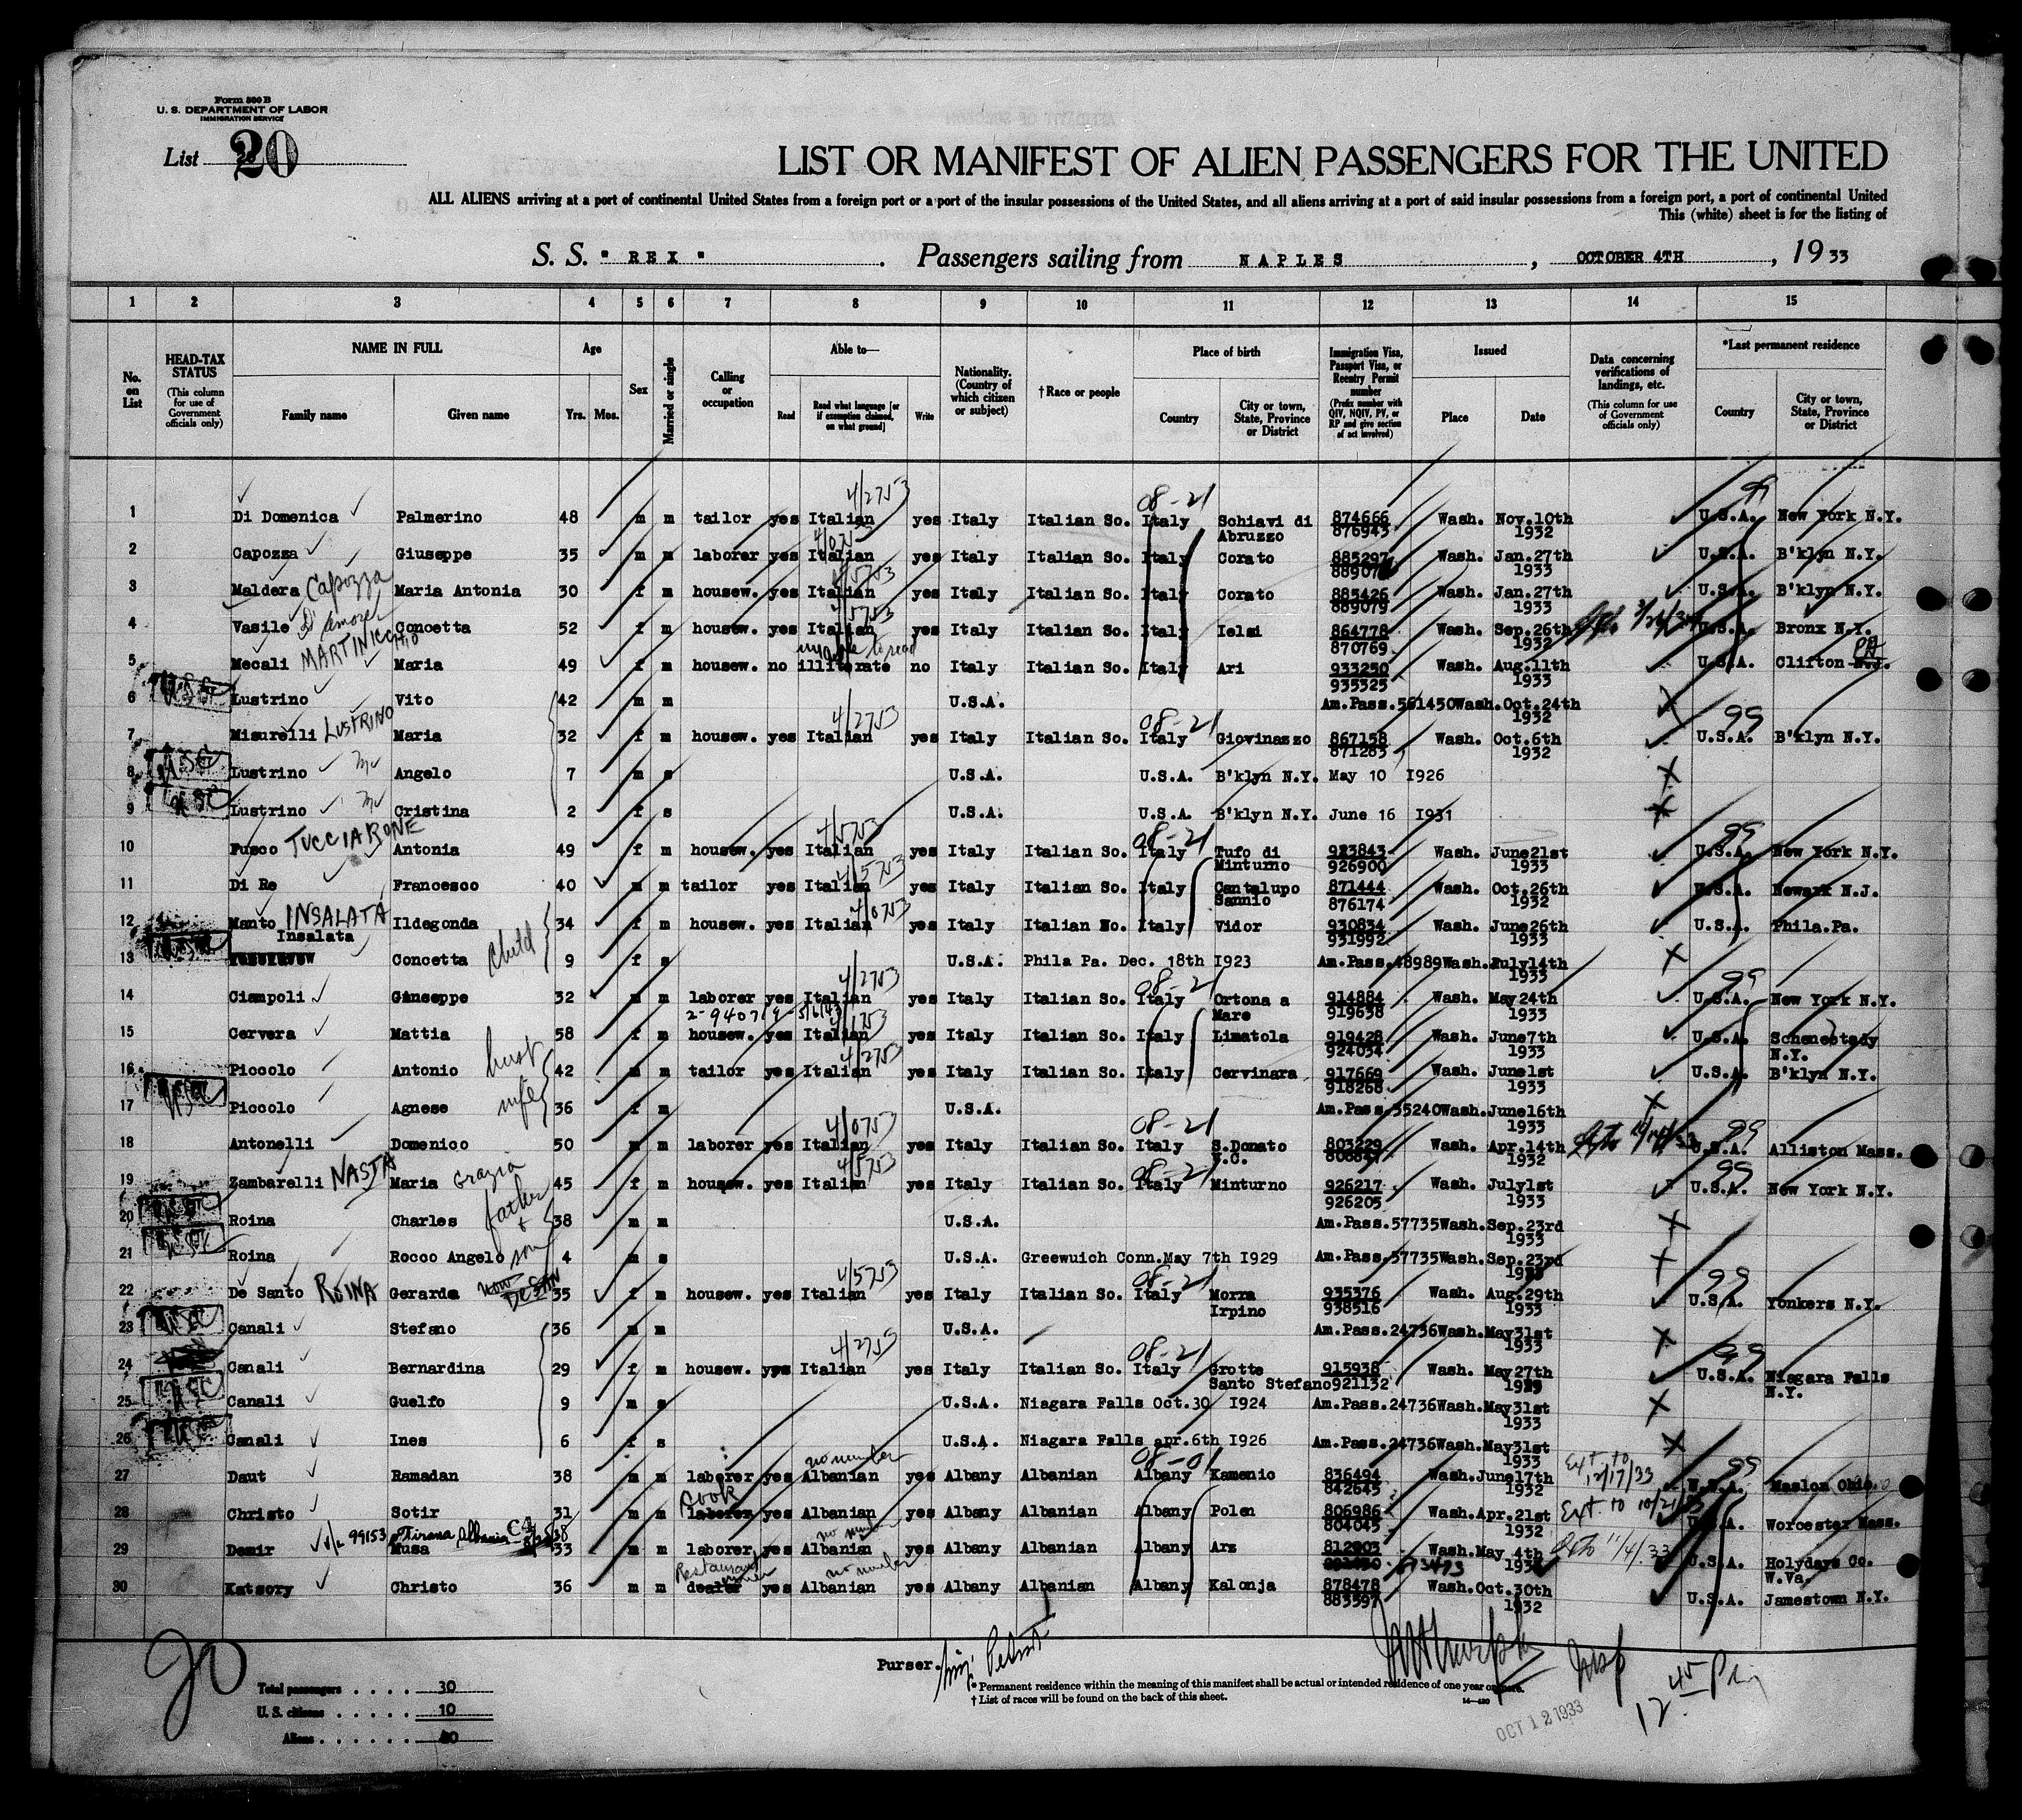 Form 500 B
U. S. DEPARTMENT OF LABOR
IMMIGRATION SERVICE
List 20
LIST OR MANIFEST OF ALIEN PASSENGERS FOR THE UNITED
ALL ALIENS arriving at a port of continental United States from a foreign port or a port of the insular possessions of the United States, and all aliens arriving at a port of said insular possessions from a foreign port, a port of continental United
This (white) sheet is for the listing of
S. S. " REX " . Passengers sailing from NAPLES , OCTOBER 4TH , 19 33
1 2 3 4 5 6 7 8 9 10 11 12 13 14 15
No. on List
HEAD-TAX STATUS (This column for use of Government officials only)
NAME IN FULL Family name Given name
Age Yrs. Mos.
Sex
Married or single
Calling or occupation
Able to— Read Read what language [or if exemption claimed, on what ground] Write
Nationality. (Country of which citizen or subject)
† Race or people
Place of birth Country City or town, State, Province or District
Immigration Visa, Passport Visa, or Reentry Permit number (Prefix number with QIV, NQIV, PV, or RP and give section of act involved)
Issued Place Date
Data concerning verifications of landings, etc. (This column for use of Government officials only)
*Last permanent residence Country City or town, State, Province or District
4/2753 08-21 99
1 Di Domenica Palmerino 48 m m tailor yes Italian yes Italy Italian So. Italy Schiavi di Abruzzo 874666 876943 Wash. Nov.10th 1932 U.S.A. New York N.Y.
2 Capozza Giuseppe 35 m m laborer yes Italian yes Italy Italian So. Italy Corato 885297 Wash. Jan.27th 1933 U.S.A. B'klyn N.Y.
3 Maldera Capozza Maria Antonia 30 f m housew. yes Italian yes Italy Italian So. Italy Corato 885426 889079 Wash. Jan.27th 1933 U.S.A. B'klyn N.Y.
4 Vasile Concetta 52 f m housew. yes Italian yes Italy Italian So. Italy Ielsi 864778 870769 Wash. Sep.26th 1932 U.S.A. Bronx N.Y.
5 Mecali MARTINICCHIO Maria 49 f m housew. no illiterate no Italy Italian So. Italy Ari 933250 935325 Wash. Aug.11th 1933 U.S.A. Clifton N.J. PA
6 Lustrino Vito 42 m m U.S.A. Am.Pass.561450 Wash.Oct.24th 1932
7 Misurelli LUSTRINO Maria 32 f m housew. yes Italian 4/2753 yes Italy Italian So. Italy 08-21 Giovinazzo 867158 871283 Wash. Oct.6th 1932 99 U.S.A. B'klyn N.Y.
8 Lustrino Angelo 7 m s U.S.A. U.S.A. B'klyn N.Y. May 10 I926
9 Lustrino Cristina 2 f s U.S.A. U.S.A. B'klyn N.Y. June 16 I931
10 Fusco TUCCIARONE Antonia 49 f m housew. yes Italian 4/5753 yes Italy Italian So. Italy 08-21 Tufo di Minturno 923843 926900 Wash. June21st 1933 99 U.S.A. New York N.Y.
11 Di Re Francesco 40 m m tailor yes Italian 4/5753 yes Italy Italian So. Italy Cantalupo Sannio 871444 876174 Wash. Oct.26th 1932 U.S.A. Newark N.J.
12 Manto INSALATA Ildegonda 34 f m housew. yes Italian 4/0753 yes Italy Italian No. Italy Vidor 930834 931992 Wash. June26th 1933 U.S.A. Phila.Pa.
13 Insalata Concetta Child 9 f s U.S.A. Phila Pa. Dec. 18th I923 Am.Pass.48989 Wash.July14th 1933
14 Ciampoli Giuseppe 32 m m laborer yes Italian 4/2753 yes Italy Italian So. Italy 08-21 Ortona a Mare 914884 919638 Wash. May24th 1933 99 U.S.A. New York N.Y.
15 Cervera Mattia 58 f m housew. yes Italian yes Italy Italian So. Italy Limatola 919428 924034 Wash. June7th 1933 U.S.A. Schenectady N.Y.
16 Piccolo Antonio husb 42 m m tailor yes Italian 4/2753 yes Italy Italian So. Italy Cervinara 917669 918268 Wash. June1st 1933 U.S.A. B'klyn N.Y.
17 Piccolo Agnese wife 36 f m U.S.A. Am.Pass.35240 Wash.June16th 1933
18 Antonelli Domenico 50 m m laborer yes Italian 4/0753 yes Italy Italian So. Italy 08-21 S.Donato 803229 Wash. Apr.14th 1932 99 U.S.A. Alliston Mass.
19 Zambarelli NASTA Maria Grazia 45 f m housew. yes Italian 4/5753 yes Italy Italian So. Italy 08-21 Minturno 926217 926205 Wash. July1st 1933 99 U.S.A. New York N.Y.
20 Roina Charles father + 38 m m U.S.A. Am.Pass.57735 Wash.Sep.23rd 1933
21 Roina Rocco Angelo son 4 m s U.S.A. Greewuich Conn.May 7th I929 Am.Pass.57735 Wash.Sep.23rd
22 De Santo ROINA Gerarda 35 f m housew. yes Italian 4/5753 yes Italy Italian So. Italy 08-21 Morra Irpino 935376 938516 Wash. Aug.29th 1933 99 U.S.A. Yonkers N.Y.
23 Canali Stefano 36 m m U.S.A. Am.Pass.24736 Wash.May31st 1933
24 Canali Bernardina 29 f m housew. yes Italian 4/2753 yes Italy Italian So. Italy 08-21 Grotte Santo Stefano 915938 921132 Wash. May27th 99 U.S.A. Niagara Falls N.Y.
25 Canali Guelfo 9 m s U.S.A. Niagara Falls Oct.30 I924 Am.Pass.24736 Wash.May31st 1933
26 Canali Ines 6 f s U.S.A. Niagara Falls apr.6th I926 Am.Pass.24736 Wash.May31st 1933
27 Daut Ramadan 38 m m laborer yes Albanian no number yes Albany Albanian Albany 08-01 Kamenic 836494 842645 Wash.June17th 1932 Ext. to 12/17/33 99 U.S.A. Maslon Ohio.
28 Christo Sotir 31 m m laborer cook yes Albanian yes Albany Albanian Albany Polen 806986 804045 Wash.Apr.21st 1932 Ext. to U.S.A. Worcester Mass.
29 Demir 99153 Tirana Albania Musa 33 m m laborer yes Albanian no number yes Albany Albanian Albany Arz 812903 Wash.May 4th 11/4/33 U.S.A. Holydays Co. W.Va.
30 Katsory Christo 36 m m dealer Restaurant yes Albanian no number yes Albany Albanian Albany Kalonja 878478 883597 Wash.Oct.30th 1932 U.S.A. Jamestown N.Y.
20
Purser.
* Permanent residence within the meaning of this manifest shall be actual or intended residence of one year or more.
† List of races will be found on the back of this sheet.
Total passengers . . . . 30
U. S. citizens . . . . . 10
Aliens . . . . . . 20
OCT 12 1933
12 45 PM